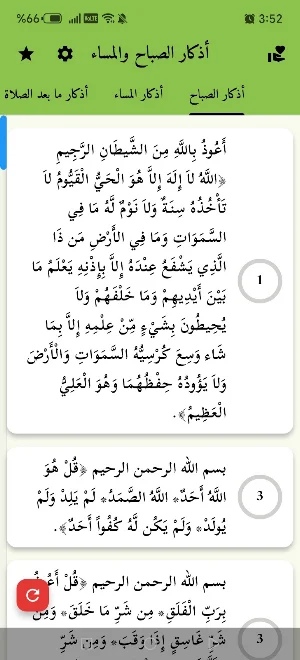 %66 VoLTE 3:52
أذكار الصباح والمساء
أذكار الصباح أذكار المساء أذكار ما بعد الصلاة
أَعُوذُ بِاللَّهِ مِنَ الشَّيطَانِ الرَّجِيمِ
﴿اللَّهُ لاَ إِلَهَ إِلاَّ هُوَ الْحَيُّ الْقَيُّومُ لاَ
تَأْخُذُهُ سِنَةٌ وَلاَ نَوْمٌ لَّهُ مَا فِي
السَّمَوَاتِ وَمَا فِي الأَرْضِ مَن ذَا
الَّذِي يَشْفَعُ عِنْدَهُ إِلاَّ بِإِذْنِهِ يَعْلَمُ مَا
بَيْنَ أَيْدِيهِمْ وَمَا خَلْفَهُمْ وَلاَ
يُحِيطُونَ بِشَيْءٍ مِّنْ عِلْمِهِ إِلاَّ بِمَا
شَاء وَسِعَ كُرْسِيُّهُ السَّمَوَاتِ وَالْأَرْضَ
وَلاَ يَؤُودُهُ حِفْظُهُمَا وَهُوَ الْعَلِيُّ
الْعَظِيمُ﴾.
1
بسم الله الرحمن الرحيم ﴿قُلْ هُوَ
اللَّهُ أَحَدٌ* اللَّهُ الصَّمَدُ* لَمْ يَلِدْ وَلَمْ
يُولَدْ* وَلَمْ يَكُن لَّهُ كُفُواً أَحَدٌ﴾.
3
بسم الله الرحمن الرحيم ﴿قُلْ أَعُوذُ
بِرَبِّ الْفَلَقِ* مِن شَرِّ مَا خَلَقَ* وَمِن
شَرِّ غَاسِقٍ إِذَا وَقَبَ* وَمِن شَرِّ
3